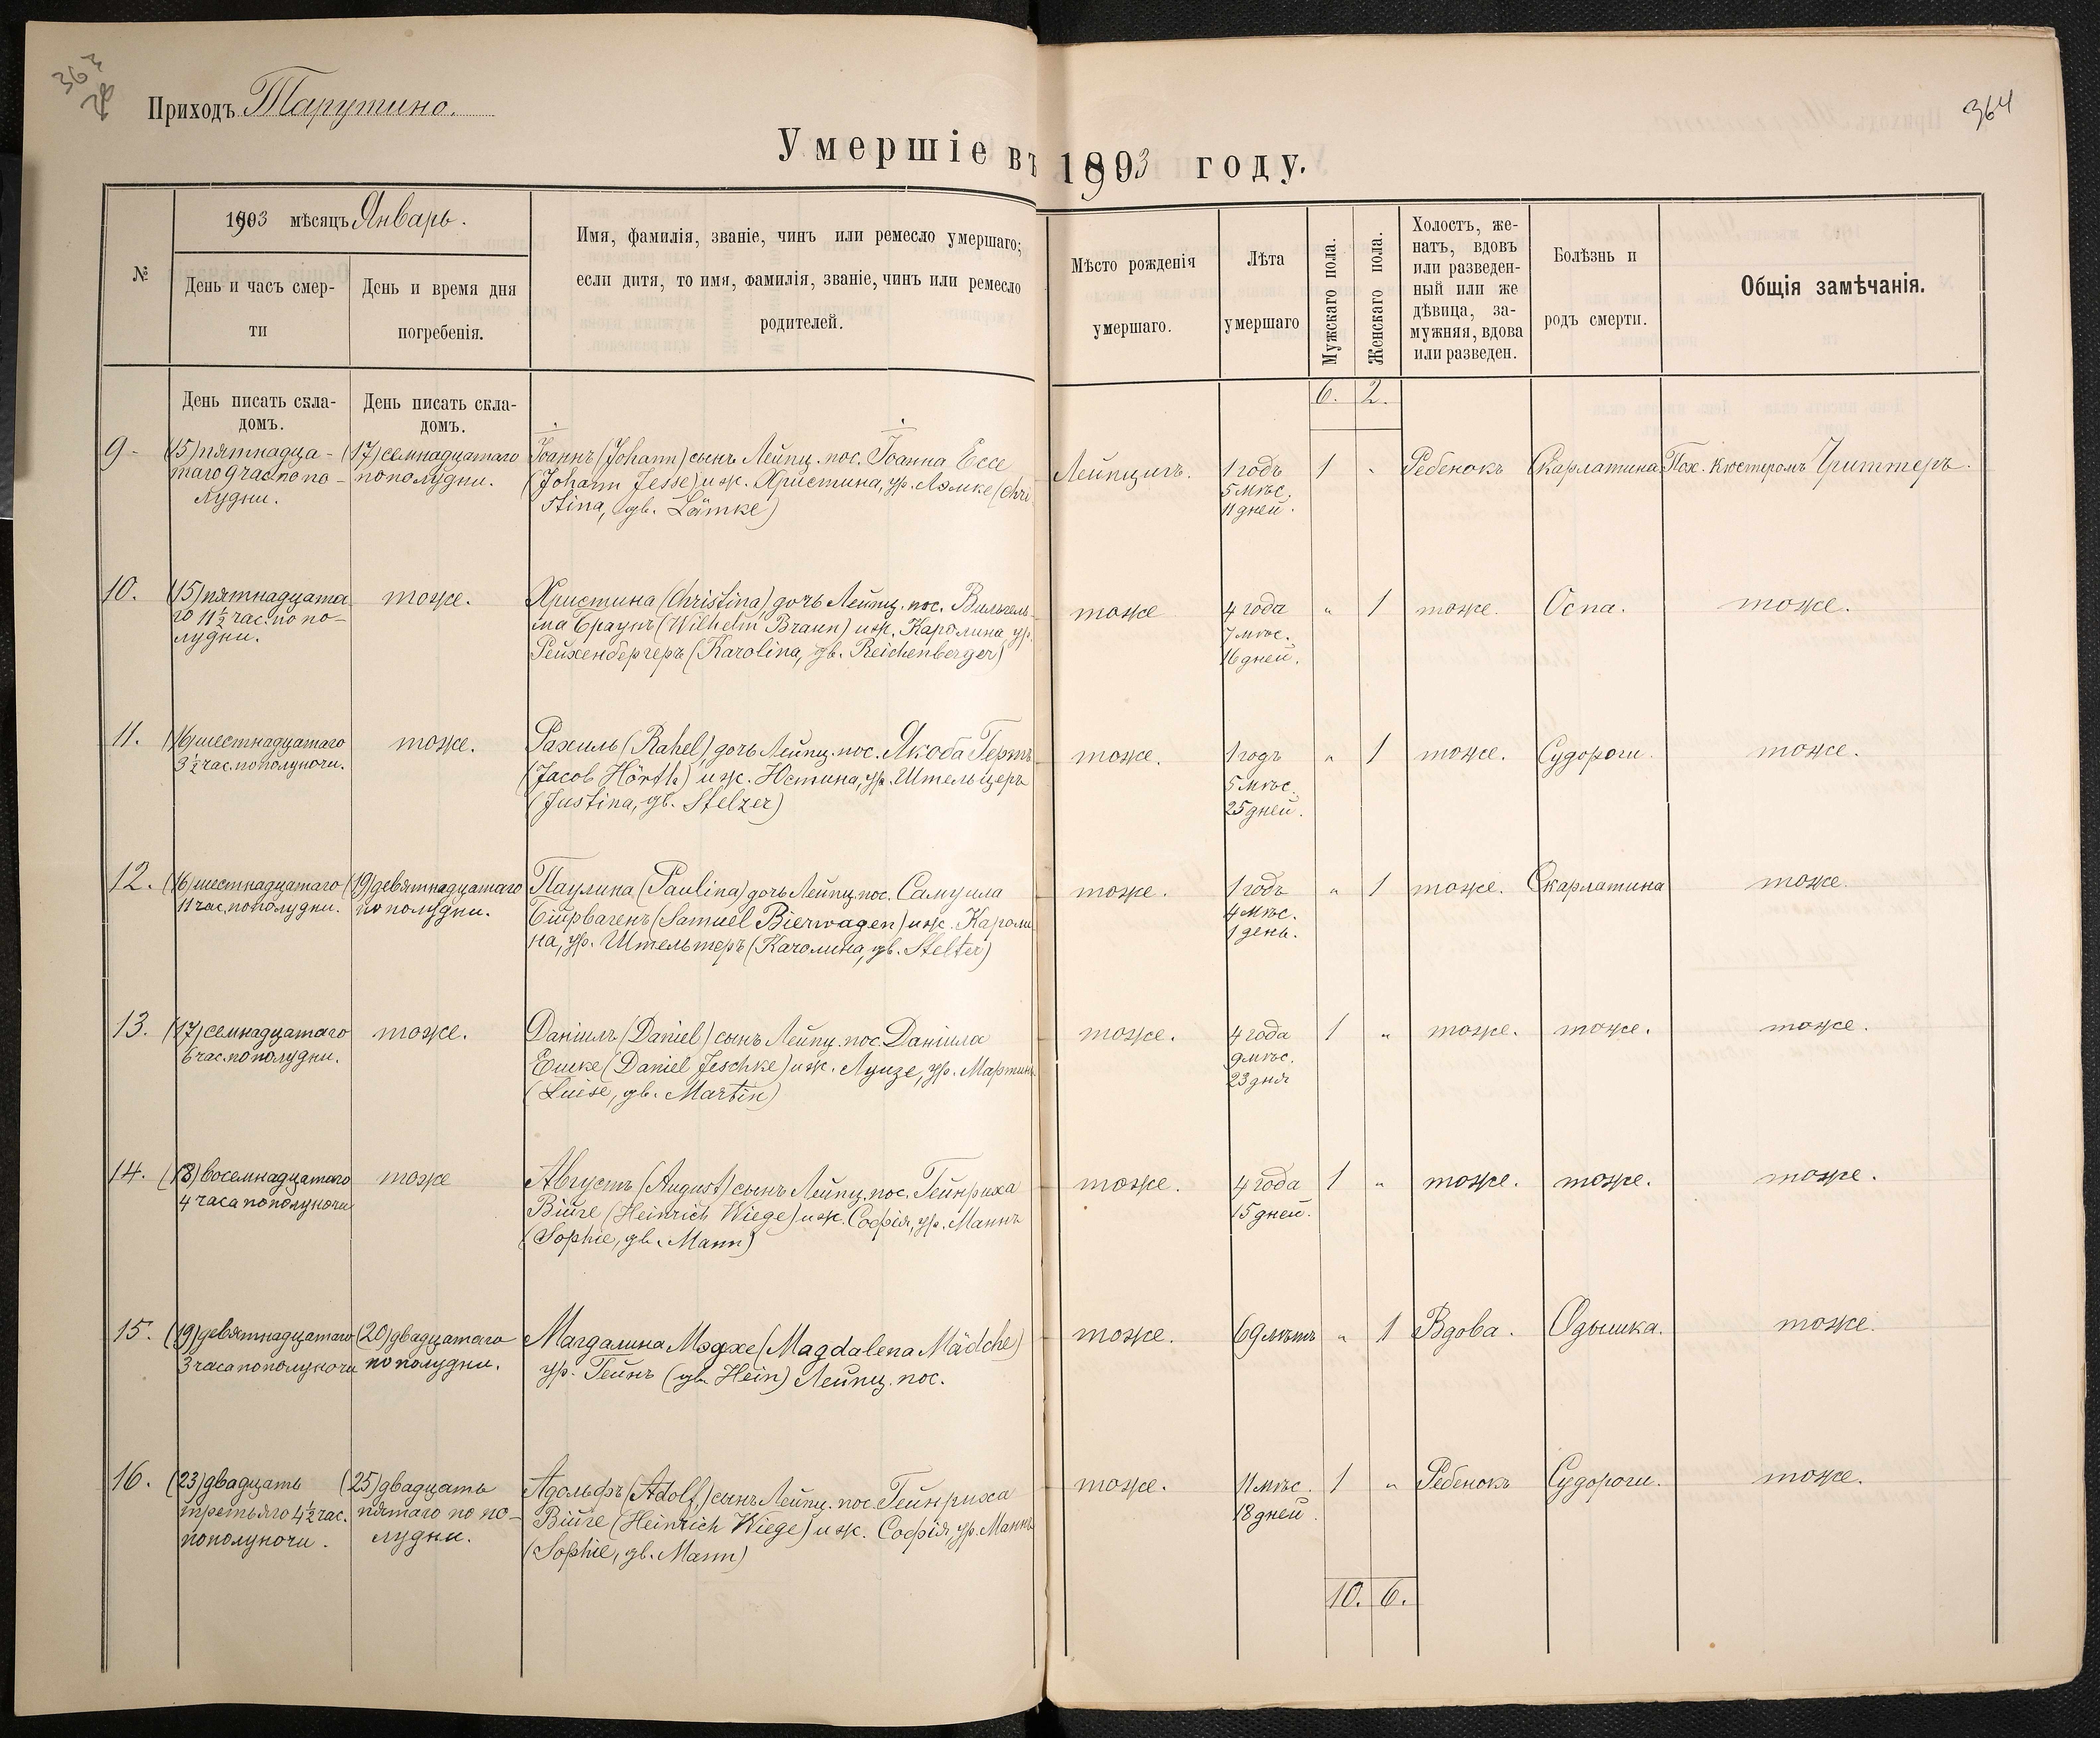 363
Приходъ Тарутино.
364
Умершіе въ 1903 году.
№
1903 мѣсяцъ Январь.
День и часъ смер-
ти
День и время дня
погребенія.
Имя, фамилія, званіе, чинъ или ремесло умершаго;
если дитя, то имя, фамилія, званіе, чинъ или ремесло
родителей.
Мѣсто рожденія
умершаго.
Лѣта
умершаго
Мужскаго пола.
Женскаго пола.
Холостъ, же-
натъ, вдовъ
или разведен-
ный или же
дѣвица, за-
мужняя, вдова
или разведен.
Болѣзнь и
родъ смерти.
Общія замѣчанія.
День писать скла-
домъ.
День писать скла-
домъ.
6. 2.
9. (15) пятнадца-
таго 9 час. по по-
лудни.
(17) семнадцатаго
по полудни.
Іоаннъ (Johann) сынъ Лейпц. пос. Іоанна Ессе
(Johann Jesse) и ж. Христина, ур. Лэмке (Chri
stina, gb. Lämke)
Лейпцигъ.
1 годъ
5 мѣс.
11 дней.
1 "
Ребенокъ
Скарлатина
Пох. кюстеромъ Гриттеръ.
10. (15) пятнадцата
го 11½ час. по по-
лудни.
тоже.
Христина (Christina) дочь Лейпц. пос. Вильгель
ма Браунъ (Wilhelm Braun) и ж. Каролина, ур.
Рейхенбергеръ (Karolina, gb. Reichenberger)
тоже
4 года
7 мѣс.
16 дней.
" 1
тоже.
Оспа.
тоже.
11. (16) шестнадцатаго
3½ час. пополуночи.
тоже.
Рахиль (Rahel) дочь Лейпц. пос. Якоба Гертъ
(Jacob Hörth) и ж. Юстина, ур. Штельцеръ
(Justina, gb. Stelzer)
тоже.
1 годъ
5 мѣс.
25 дней.
" 1
тоже.
Судороги.
тоже.
12. (16) шестнадцатаго
11 час. пополудни.
(19) девятнадцатаго
по полудни.
Паулина (Paulina) дочь Лейпц. пос. Самуила
Бійрвагенъ (Samuel Bierwagen) и ж. Кароли
на, ур. Штельтеръ (Каролина, gb. Stelter)
тоже.
1 годъ
4 мѣс.
1 день.
" 1
тоже.
Скарлатина
тоже.
13. (17) семнадцатаго
6 час. пополудни.
тоже.
Даніилъ (Daniel) сынъ Лейпц. пос. Даніила
Ешке (Daniel Jeschke) и ж. Луизе, ур. Мартинъ
(Luise, gb. Martin)
тоже.
4 года
9 мѣс.
23 дня
1 "
тоже.
тоже.
тоже.
14. (18) восемнадцатаго
4 часа пополуночи
тоже
Августъ (August) сынъ Лейпц. пос. Гейнриха
Війге (Heinrich Wiege) и ж. Софія, ур. Маннъ
(Sophie, gb. Mann)
тоже.
4 года
15 дней.
1 "
тоже.
тоже.
тоже.
15. (19) девятнадцатаго
3 часа пополуночи
(20) двадцатаго
по полудни.
Магдалина Мэдхе (Magdalena Mädche)
ур. Гейнъ (gb. Hein) Лейпц. пос.
тоже.
69 лѣтъ
" 1
Вдова.
Одышка.
тоже.
16. (23) двадцать
третьяго 4½ час.
пополуночи.
(25) двадцать
пятаго по по-
лудни.
Адольфъ (Adolf,) сынъ Лейпц. пос. Гейнриха
Війге (Heinrich Wiege) и ж. Софія, ур. Маннъ
(Sophie, gb. Mann)
тоже.
11 мѣс.
18 дней.
1 "
Ребенокъ
Судороги.
тоже.
10. 6.